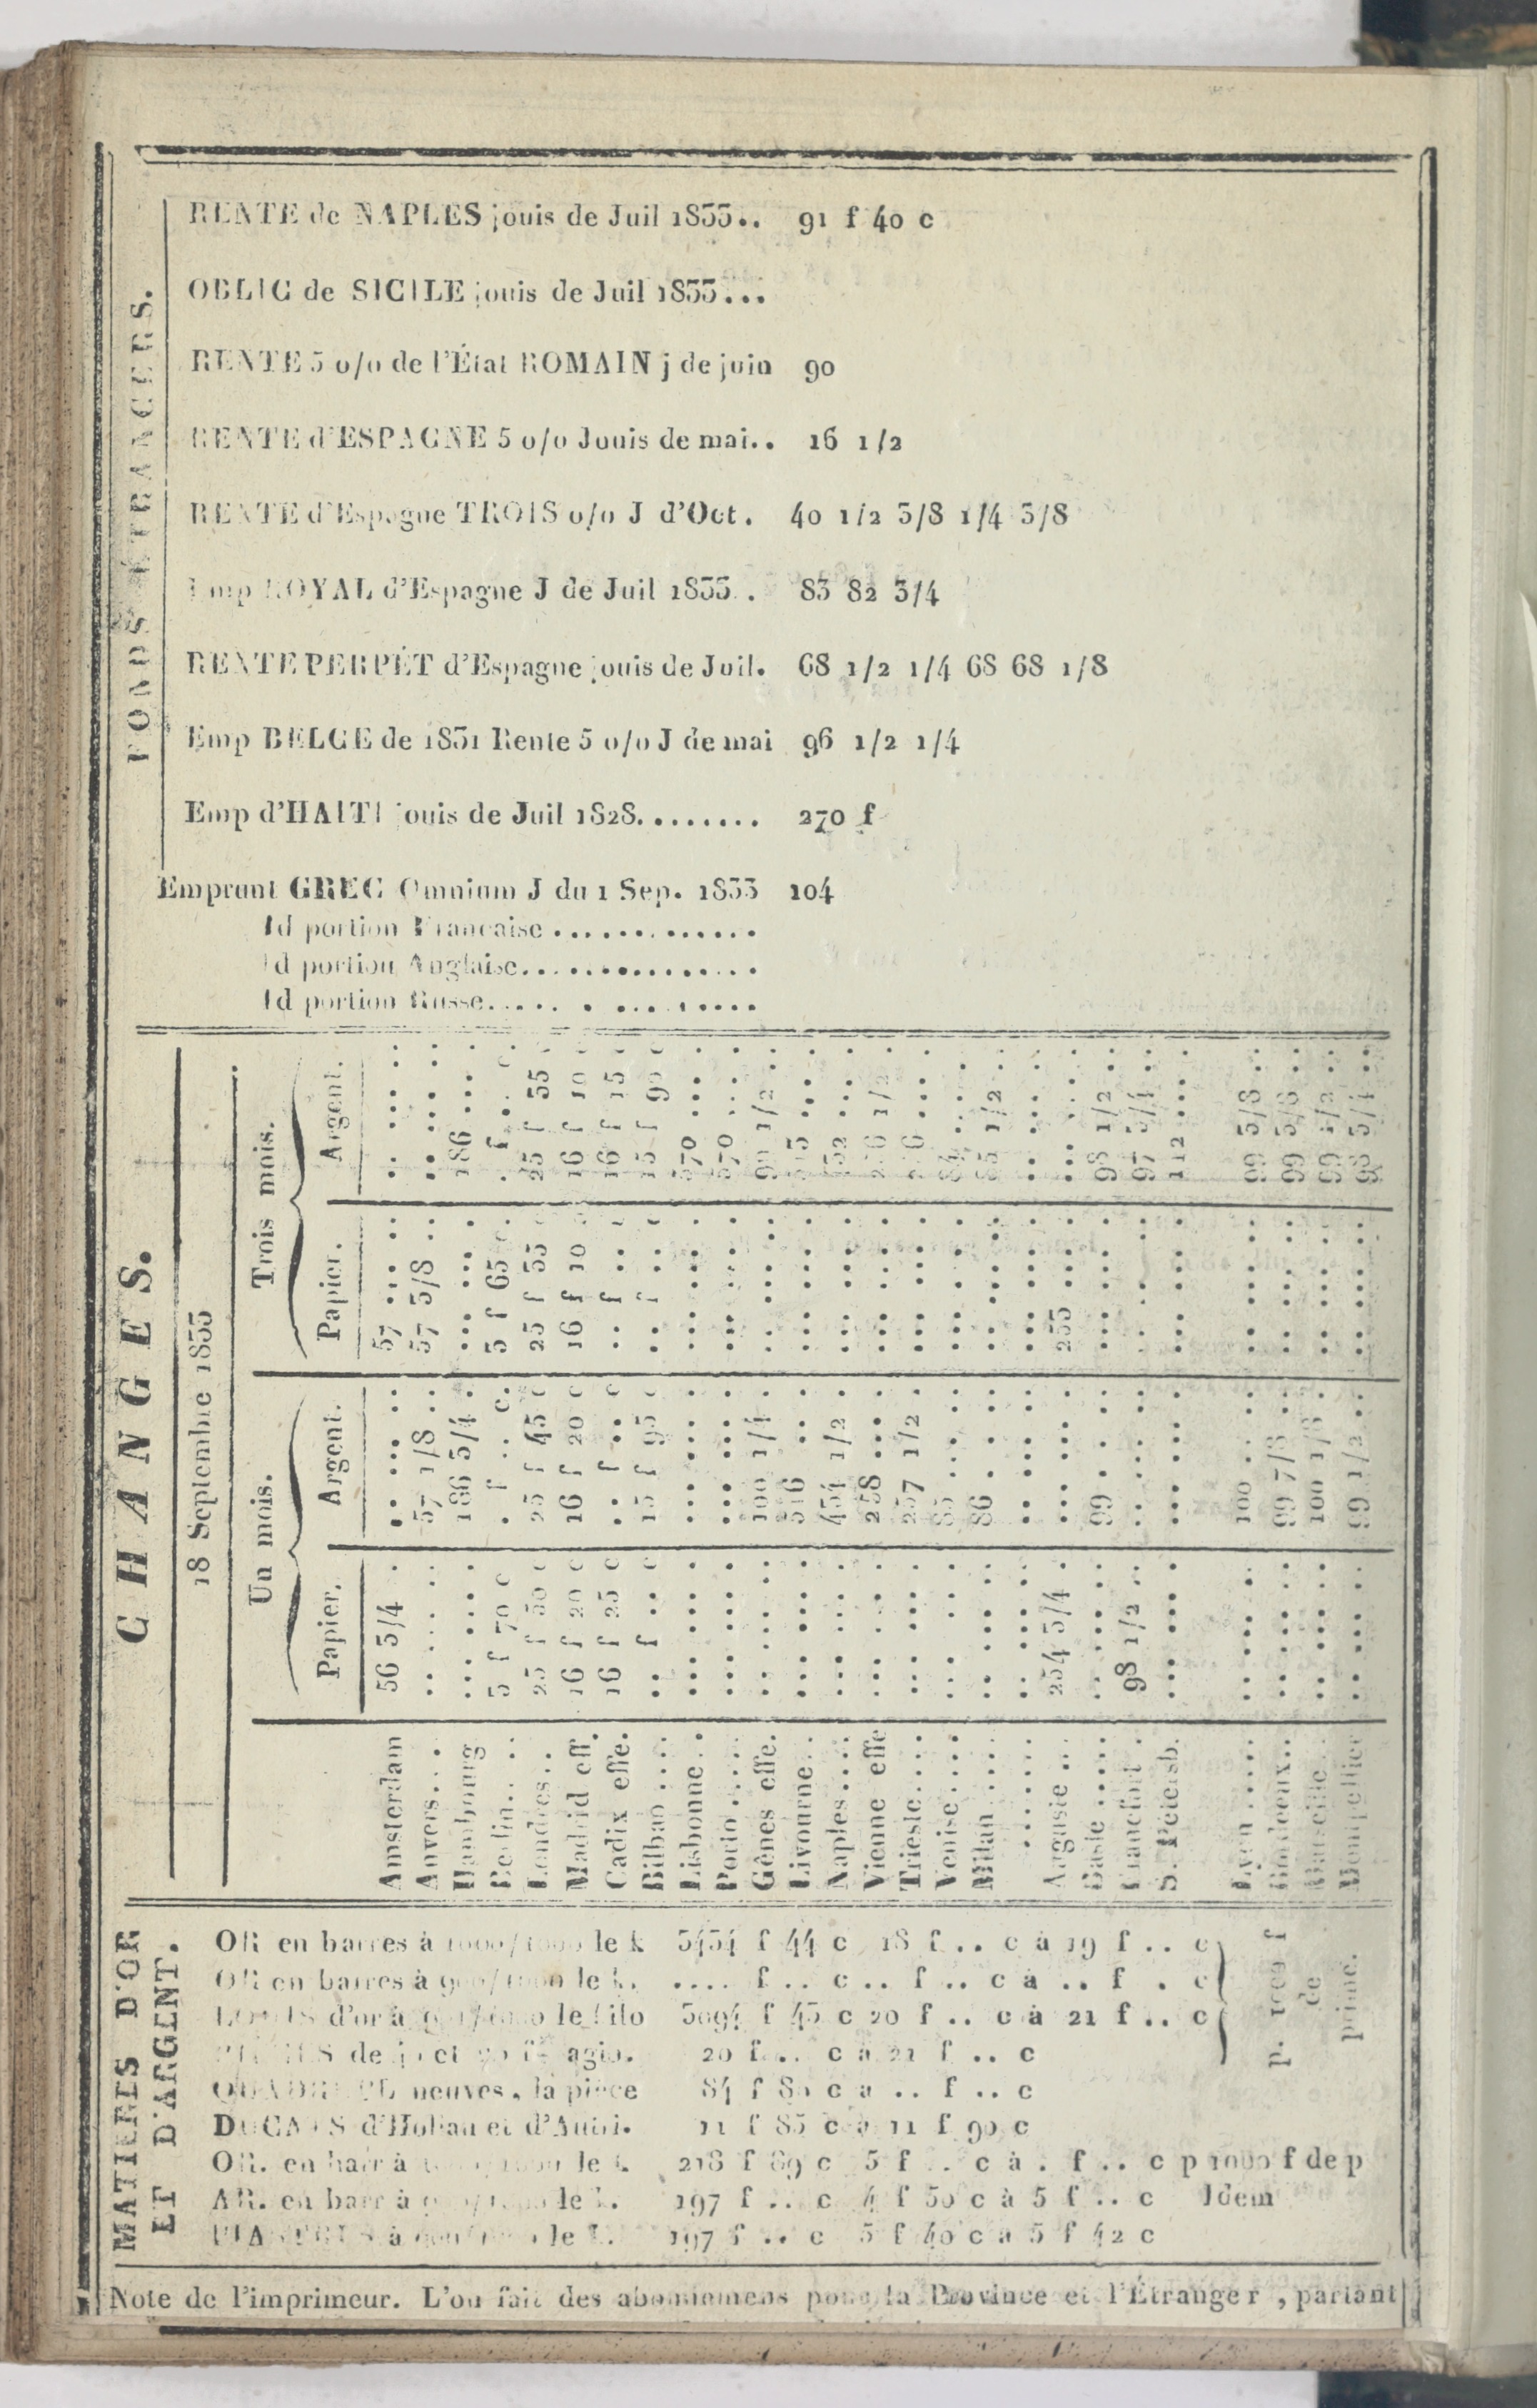 FONDS ÉTRANGERS.
RENTE de NAPLES jouis de Juil 1833.. 91 f 40 c
OBLIG de SICILE jouis de Juil 1833...
RENTE 5 o/o de l'État ROMAIN j de juin 90
RENTE d'ESPAGNE 5 o/o Jouis de mai.. 16 1/2
RENTE d'Espagne TROIS o/o J d'Oct. 40 1/2 3/8 1/4 3/8
Emp ROYAL d'Espagne J de Juil 1833. . 83 82 3/4
RENTE PERPÉT d'Espagne jouis de Juil. 68 1/2 1/4 68 68 1/8
Emp BELGE de 1831 Rente 5 o/o J de mai 96 1/2 1/4
Emp d'HAITI jouis de Juil 1828........ 270 f
Emprunt GREC Omnium J du 1 Sep. 1833 104
Id portion Francaise .............
Id portion Anglaise................
Id portion Russe................
CHANGES.
18 Septembre 1833
Un mois. Trois mois.
Papier. Argent. Papier. Argent.
Amsterdam 56 3/4 . .. ... .. 57 ... .. .. ... ..
Anvers... .. ... .. 57 1/8 .. 57 3/8 .. .. ... ..
Hambourg ... ... . 186 3/4 . ... ... . 186 ... .
Berlin.... 3 f 70 c . f .. c. 3 f 65 c . f .. c.
Londres.. 25 f 50 c 25 f 45 c 25 f 35 c 25 f 35 c
Madrid eff. 16 f 20 c 16 f 20 c 16 f 10 c 16 f 10 c
Cadix effe. 16 f 25 c .. f .. c .. f .. c 16 f 15 c
Bilbao .... .. f .. c 15 f 95 c .. f .. c 15 f 90 c
Lisbonne.. ... ... . ... ... . ... ... . 570 ... .
Porto ..... ... ... . ... ... . ... ... . 570 ... .
Gênes effe. .. ... .. 100 1/4 . .. ... .. 99 1/2 ..
Livourne.. ... ... . 516 ... . ... ... . 515 ... .
Naples .... ... ... . 434 1/2 . ... ... . 432 ... .
Vienne effe ... ... . 258 ... . ... ... . 256 1/2 .
Trieste.... ... ... . 257 1/2 . ... ... . 256 ... .
Venise .... ... .. . 85 ... .. ... .. . 84 ... ..
Milan ..... .. ... .. 86 . .. .. ... .. 85 1/2 ..
...... .. ... .. .. ... .. .. ... .. .. ... ..
Auguste ... 254 3/4 . ... ... . 253 ... . ... ... .
Basle ..... .. ... .. 99 .. .. ... ... .. 98 1/2 ..
Francfort . 98 1/2 .. .. ... .. .. . .. 97 3/4 ..
S. Petersb. ... ... . ... ... . ... ... . 112 ... .
Lyon ..... .. ... .. 100 .. .. .. ... .. 99 5/8 ..
Bordeaux... .. ... .. 99 7/8 .. .. ... .. 99 3/8 ..
Marseille.. .. ... .. 100 1/8 . .. ... .. 99 1/2 ..
Montpellier .. ... .. 99 1/2 .. .. ... .. 98 3/4 ..
MATIERES D'OR ET D'ARGENT.
OR en barres à 1000/1000 le k 3434 f 44 c 18 f .. c à 19 f .. c
OR en barres à 900/1000 le k. .... f .. c .. f .. c à .. f . c
LOUIS d'or à /1000 le kilo 3094 f 45 c 20 f .. c à 21 f .. c
p. 1000 f de prime.
PIECES de 40 et 20 fs agio. 20 f .. c à 21 f .. c
QUADRUPL neuves, la pièce 84 f 80 c a .. f .. c
DUCATS d'Hollan et d'Autri. 11 f 85 c à 11 f 90 c
OR. en barr à 1000/1000 le k. 218 f 89 c 5 f .. c à . f .. c p 1000 f de p
AR. en barr à 900/1000 le k. 197 f .. c 4 f 50 c à 5 f .. c Idem
PIASTRES à 900/1000 le k. 197 f .. c 5 f 40 c a 5 f 42 c
Note de l'imprimeur. L'on fait des abonnemens pour la Province et l'Étranger , partant